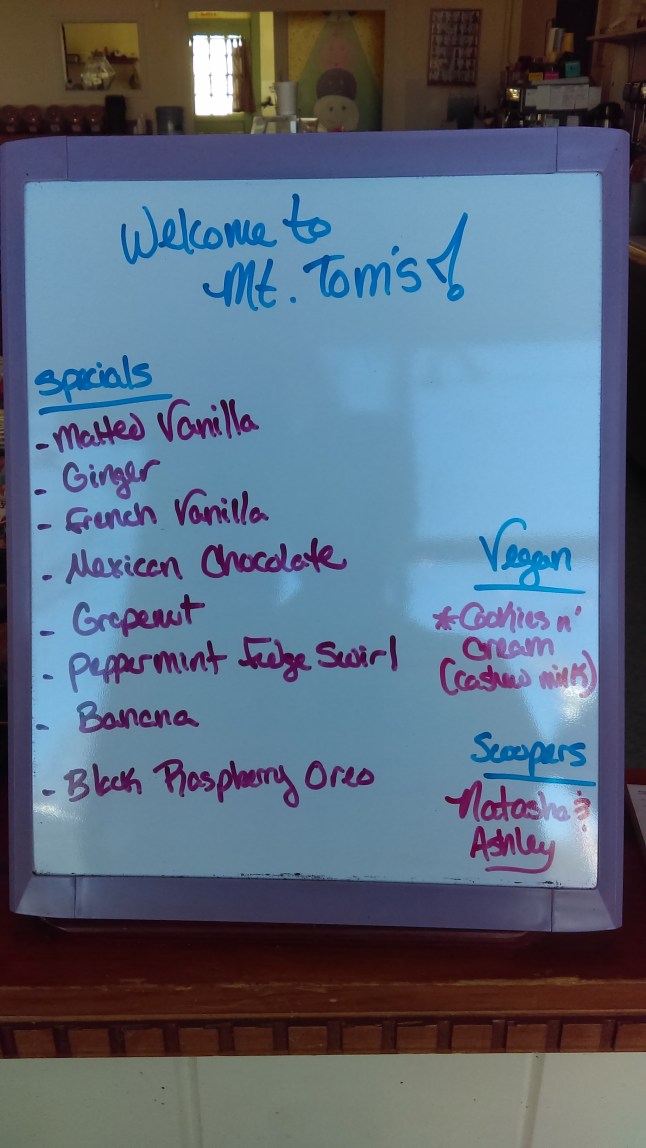 Welcome to
Mt. Tom's!
Specials
- Malted Vanilla
- Ginger
- French Vanilla
- Mexican Chocolate
- Grapenut
- Peppermint Fudge Swirl
- Banana
- Black Raspberry Oreo
Vegan
*Cookies n'
Cream
(cashew milk)
Scoopers
Natasha &
Ashley